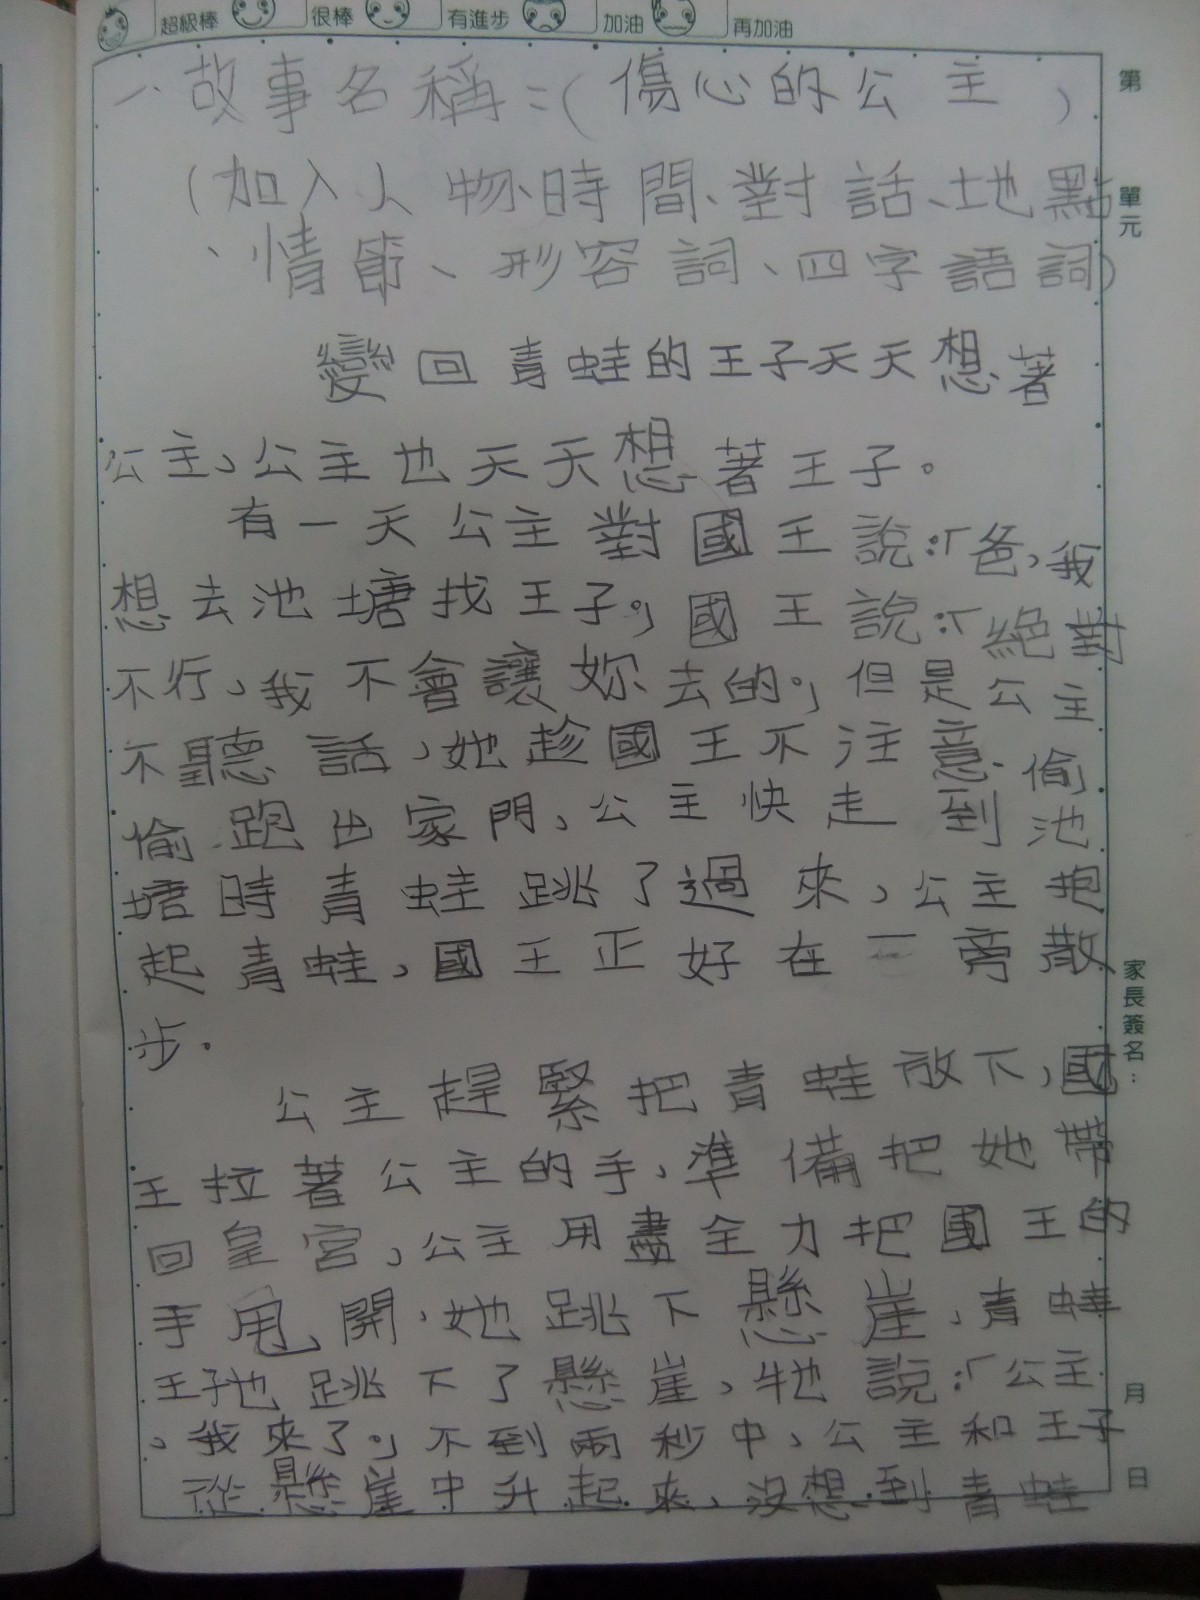 超級棒 很棒 有進步 加油 再加油
一、故事名稱:(傷心的公主)
(加入人物、時間、對話、地點
、情節、形容詞、四字語詞)
變回青蛙的王子天天想著
公主,公主也天天想著王子。
有一天公主對國王說:「爸,我
想去池塘找王子。」國王說:「絕對
不行,我不會讓妳去的。」但是公主
不聽話,她趁國王不注意、偷
偷跑出家門,公主快走到池
塘時青蛙跳了過來,公主抱
起青蛙,國王正好在一旁散
步。
公主趕緊把青蛙放下,國
王拉著公主的手,準備把她帶
回皇宮,公主用盡全力把國王的
手甩開,她跳下懸崖,青蛙
王子也跳下了懸崖,牠說:「公主
,我來了。」不到兩秒中,公主和王子
從懸崖中升起來,沒想到青蛙
第
單元
家長簽名:
月
日